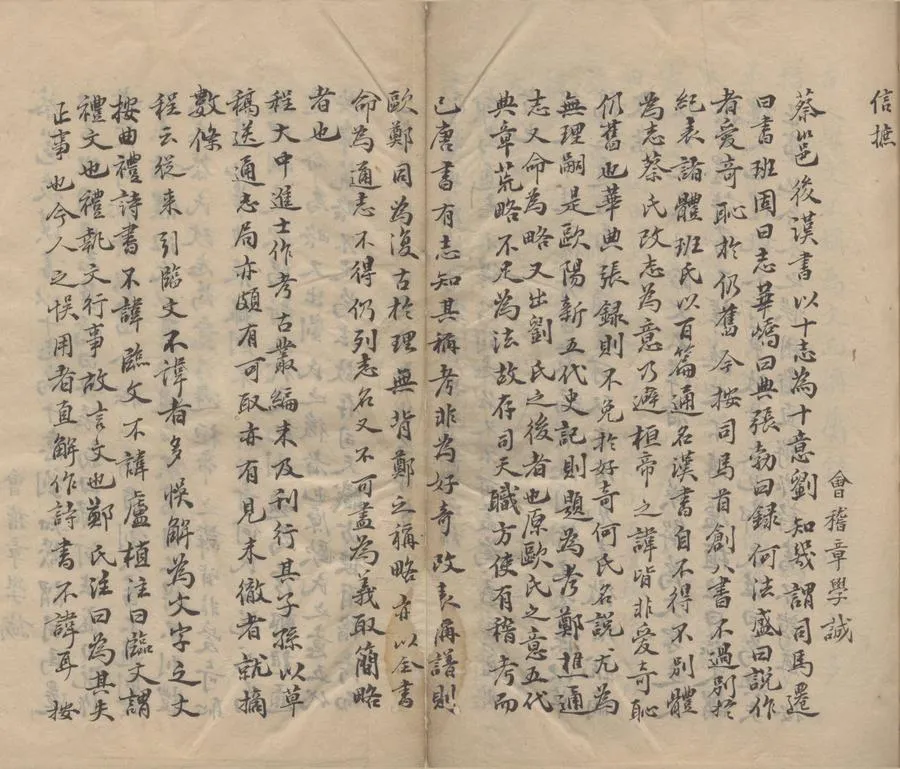 信摭
會稽章學誠
蔡邕後漢書以十志為十意劉知幾謂司馬遷
曰書班固曰志華嶠曰典張勃曰錄何法盛曰說作
者愛奇恥於仍舊今按司馬首創八書不過別於
紀表諸體班氏以百篇通名漢書自不得不別體
為志蔡氏改志為意乃避桓帝之諱皆非愛奇恥
仍舊也華典張錄則不免於好奇何氏名說尤為
無理嗣是歐陽新五代史記則題為考鄭樵通
志又命為略又出劉氏之後者也原歐氏之意五代
典章荒略不足為法故存司天職方使有稽考而
已唐書有志知其稱考非為好奇改表為譜則
歐鄭同為復古於理無背鄭之稱略亦以全書
命為通志不得仍列志名又不可盡為義取簡略
者也
程大中進士作考古叢編未及刊行其子孫以草
稿送通志局亦頗有可取亦有見未徹者就摘
數條
程云從來引臨文不諱者多悞解為文字之文
按曲禮詩書不諱臨文不諱盧植注曰臨文謂
禮文也禮執文行事故言文也鄭氏注曰為其失
正事也今人之悞用者直解作詩書不諱耳按